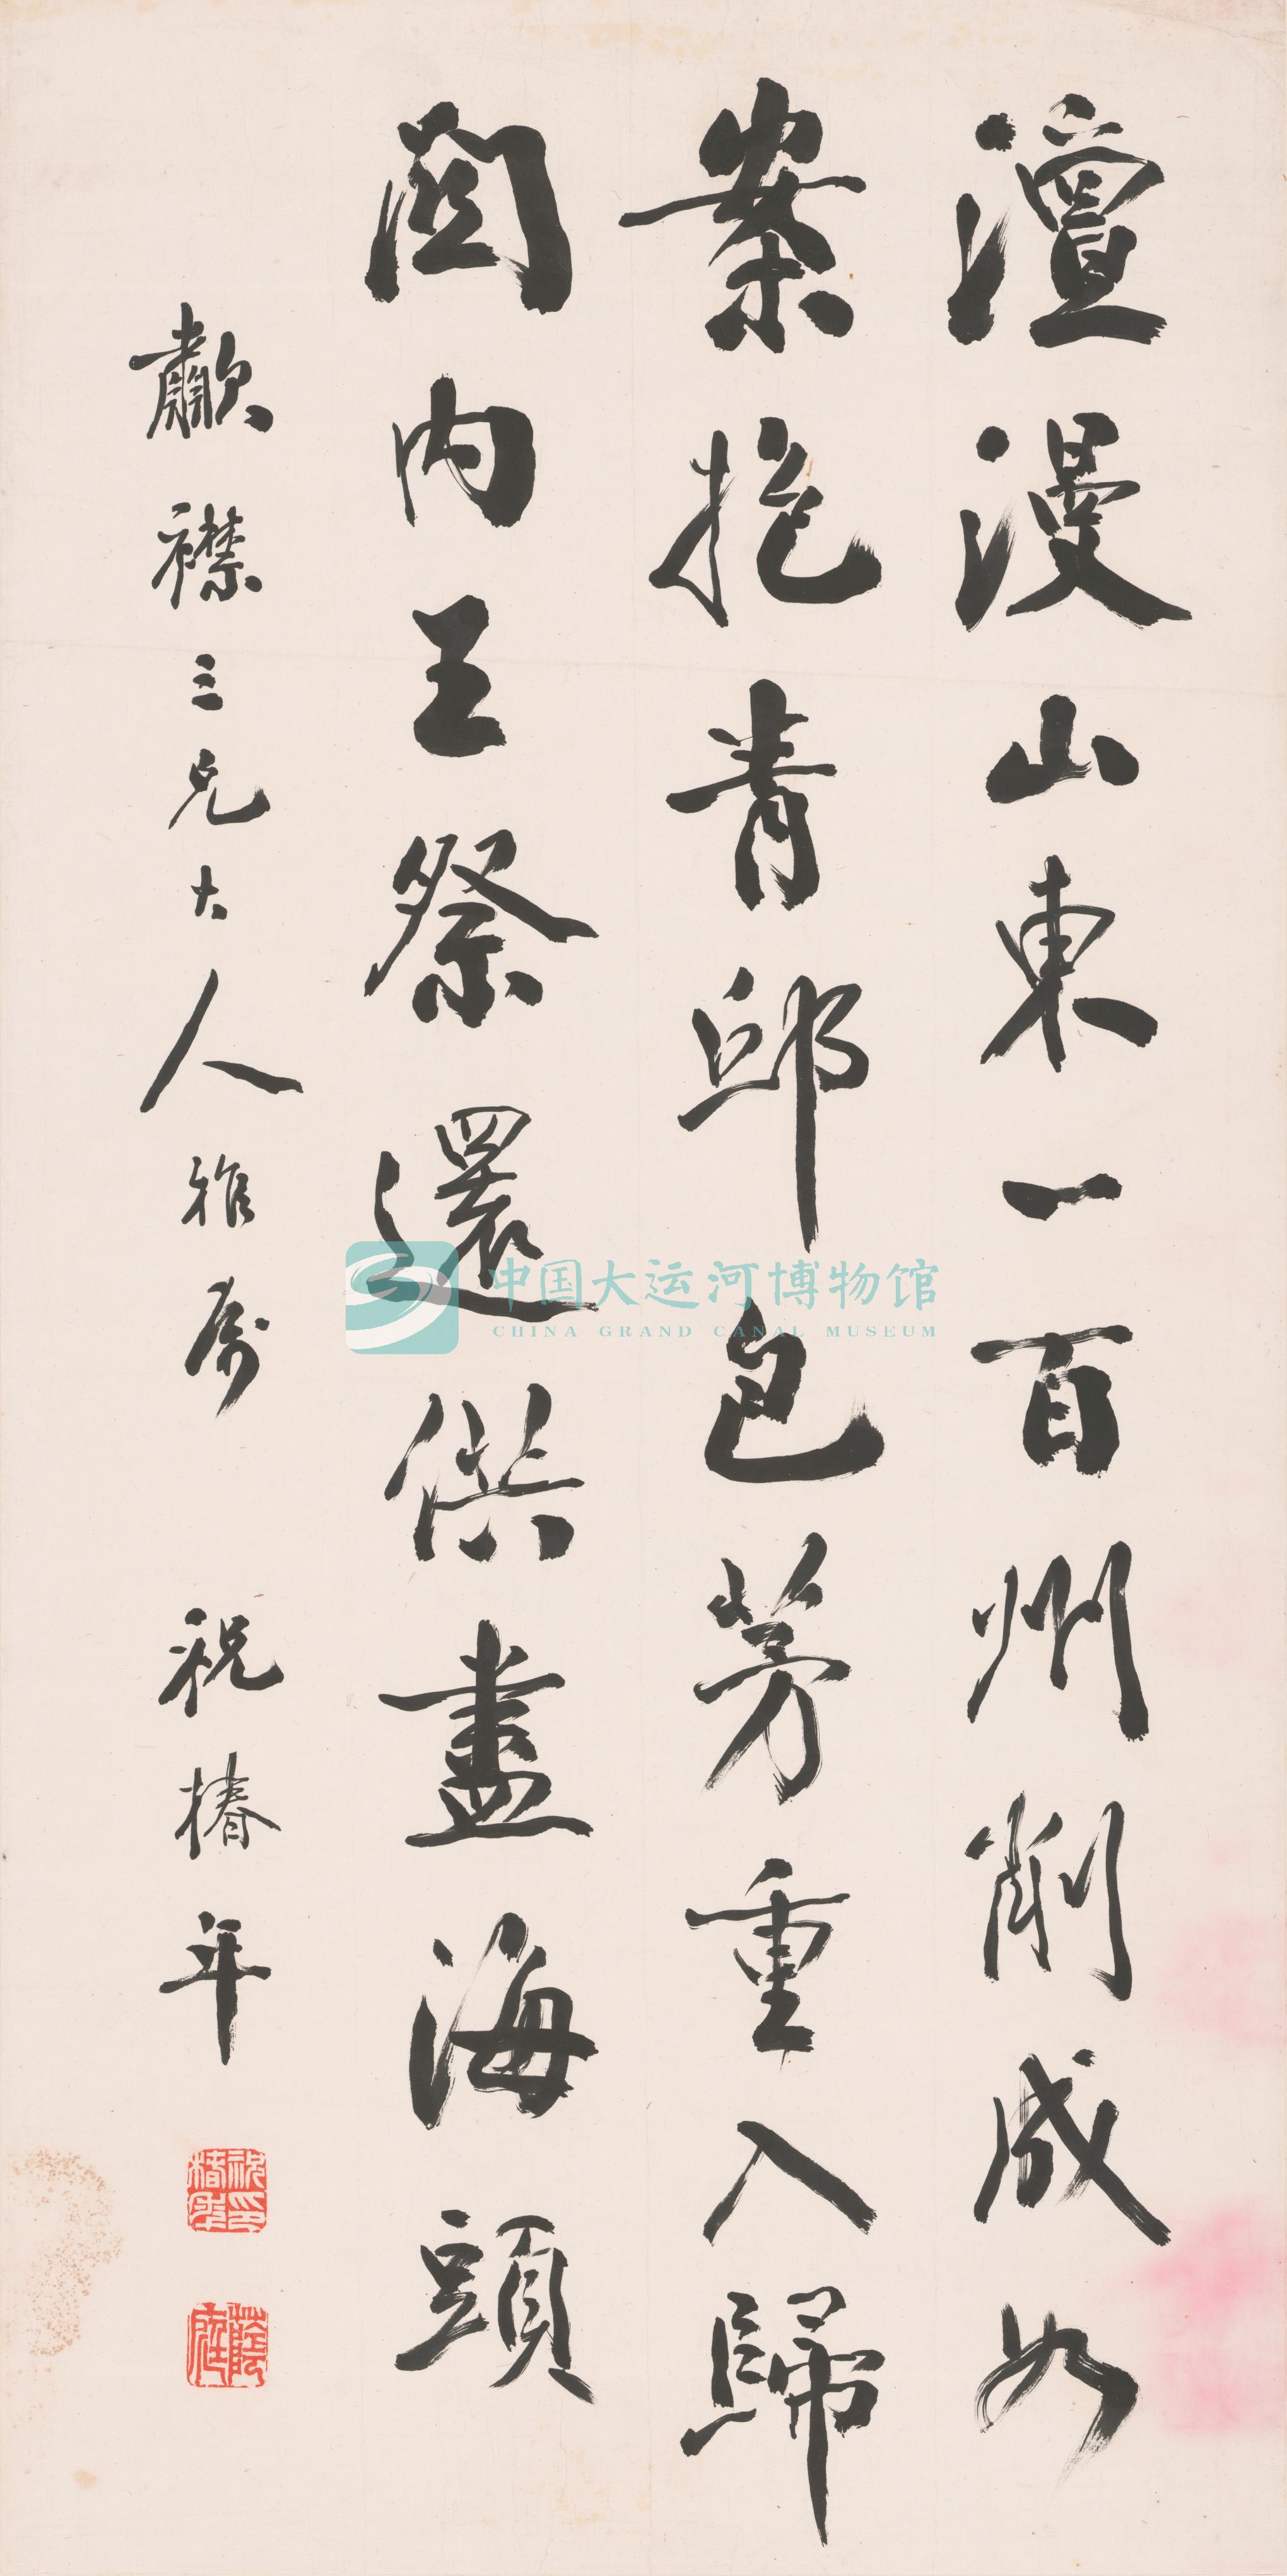 澶漫山東一百州削成如
案抱青邱包茅重入歸
關內王祭還供盡海頭
歗襟三兄大人雅屬 祝椿年
祝椿年印
蔭庭
中国大运河博物馆
CHINA GRAND CANAL MUSEUM